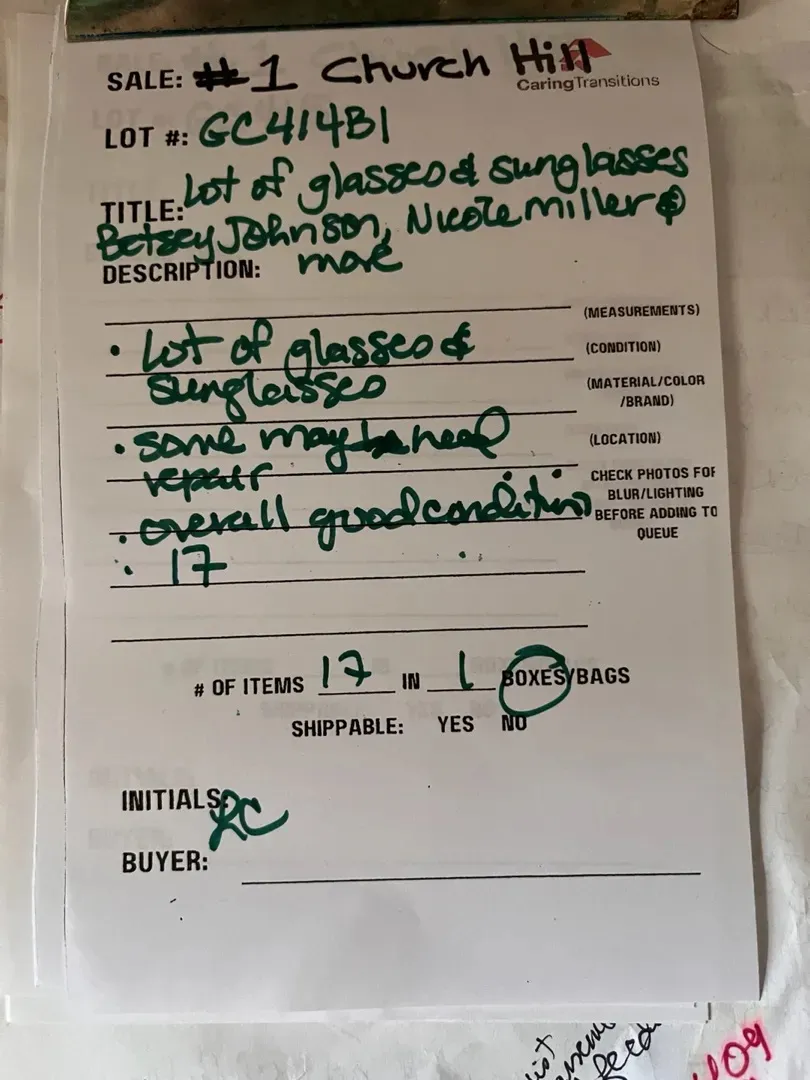 SALE: #1 Church Hill
CaringTransitions
LOT #: GC414B1
TITLE: Lot of glasses & sunglasses
Betsey Johnson, Nicole Miller &
DESCRIPTION: more
(MEASUREMENTS)
• Lot of glasses &
(CONDITION)
sunglasses
(MATERIAL/COLOR
/BRAND)
• some may be need
(LOCATION)
repair
CHECK PHOTOS FOR
BLUR/LIGHTING
• overall good condition
BEFORE ADDING TO
QUEUE
• 17
# OF ITEMS 17 IN 1 BOXES/BAGS
SHIPPABLE: YES NO
INITIALS: RC
BUYER:
feed
409